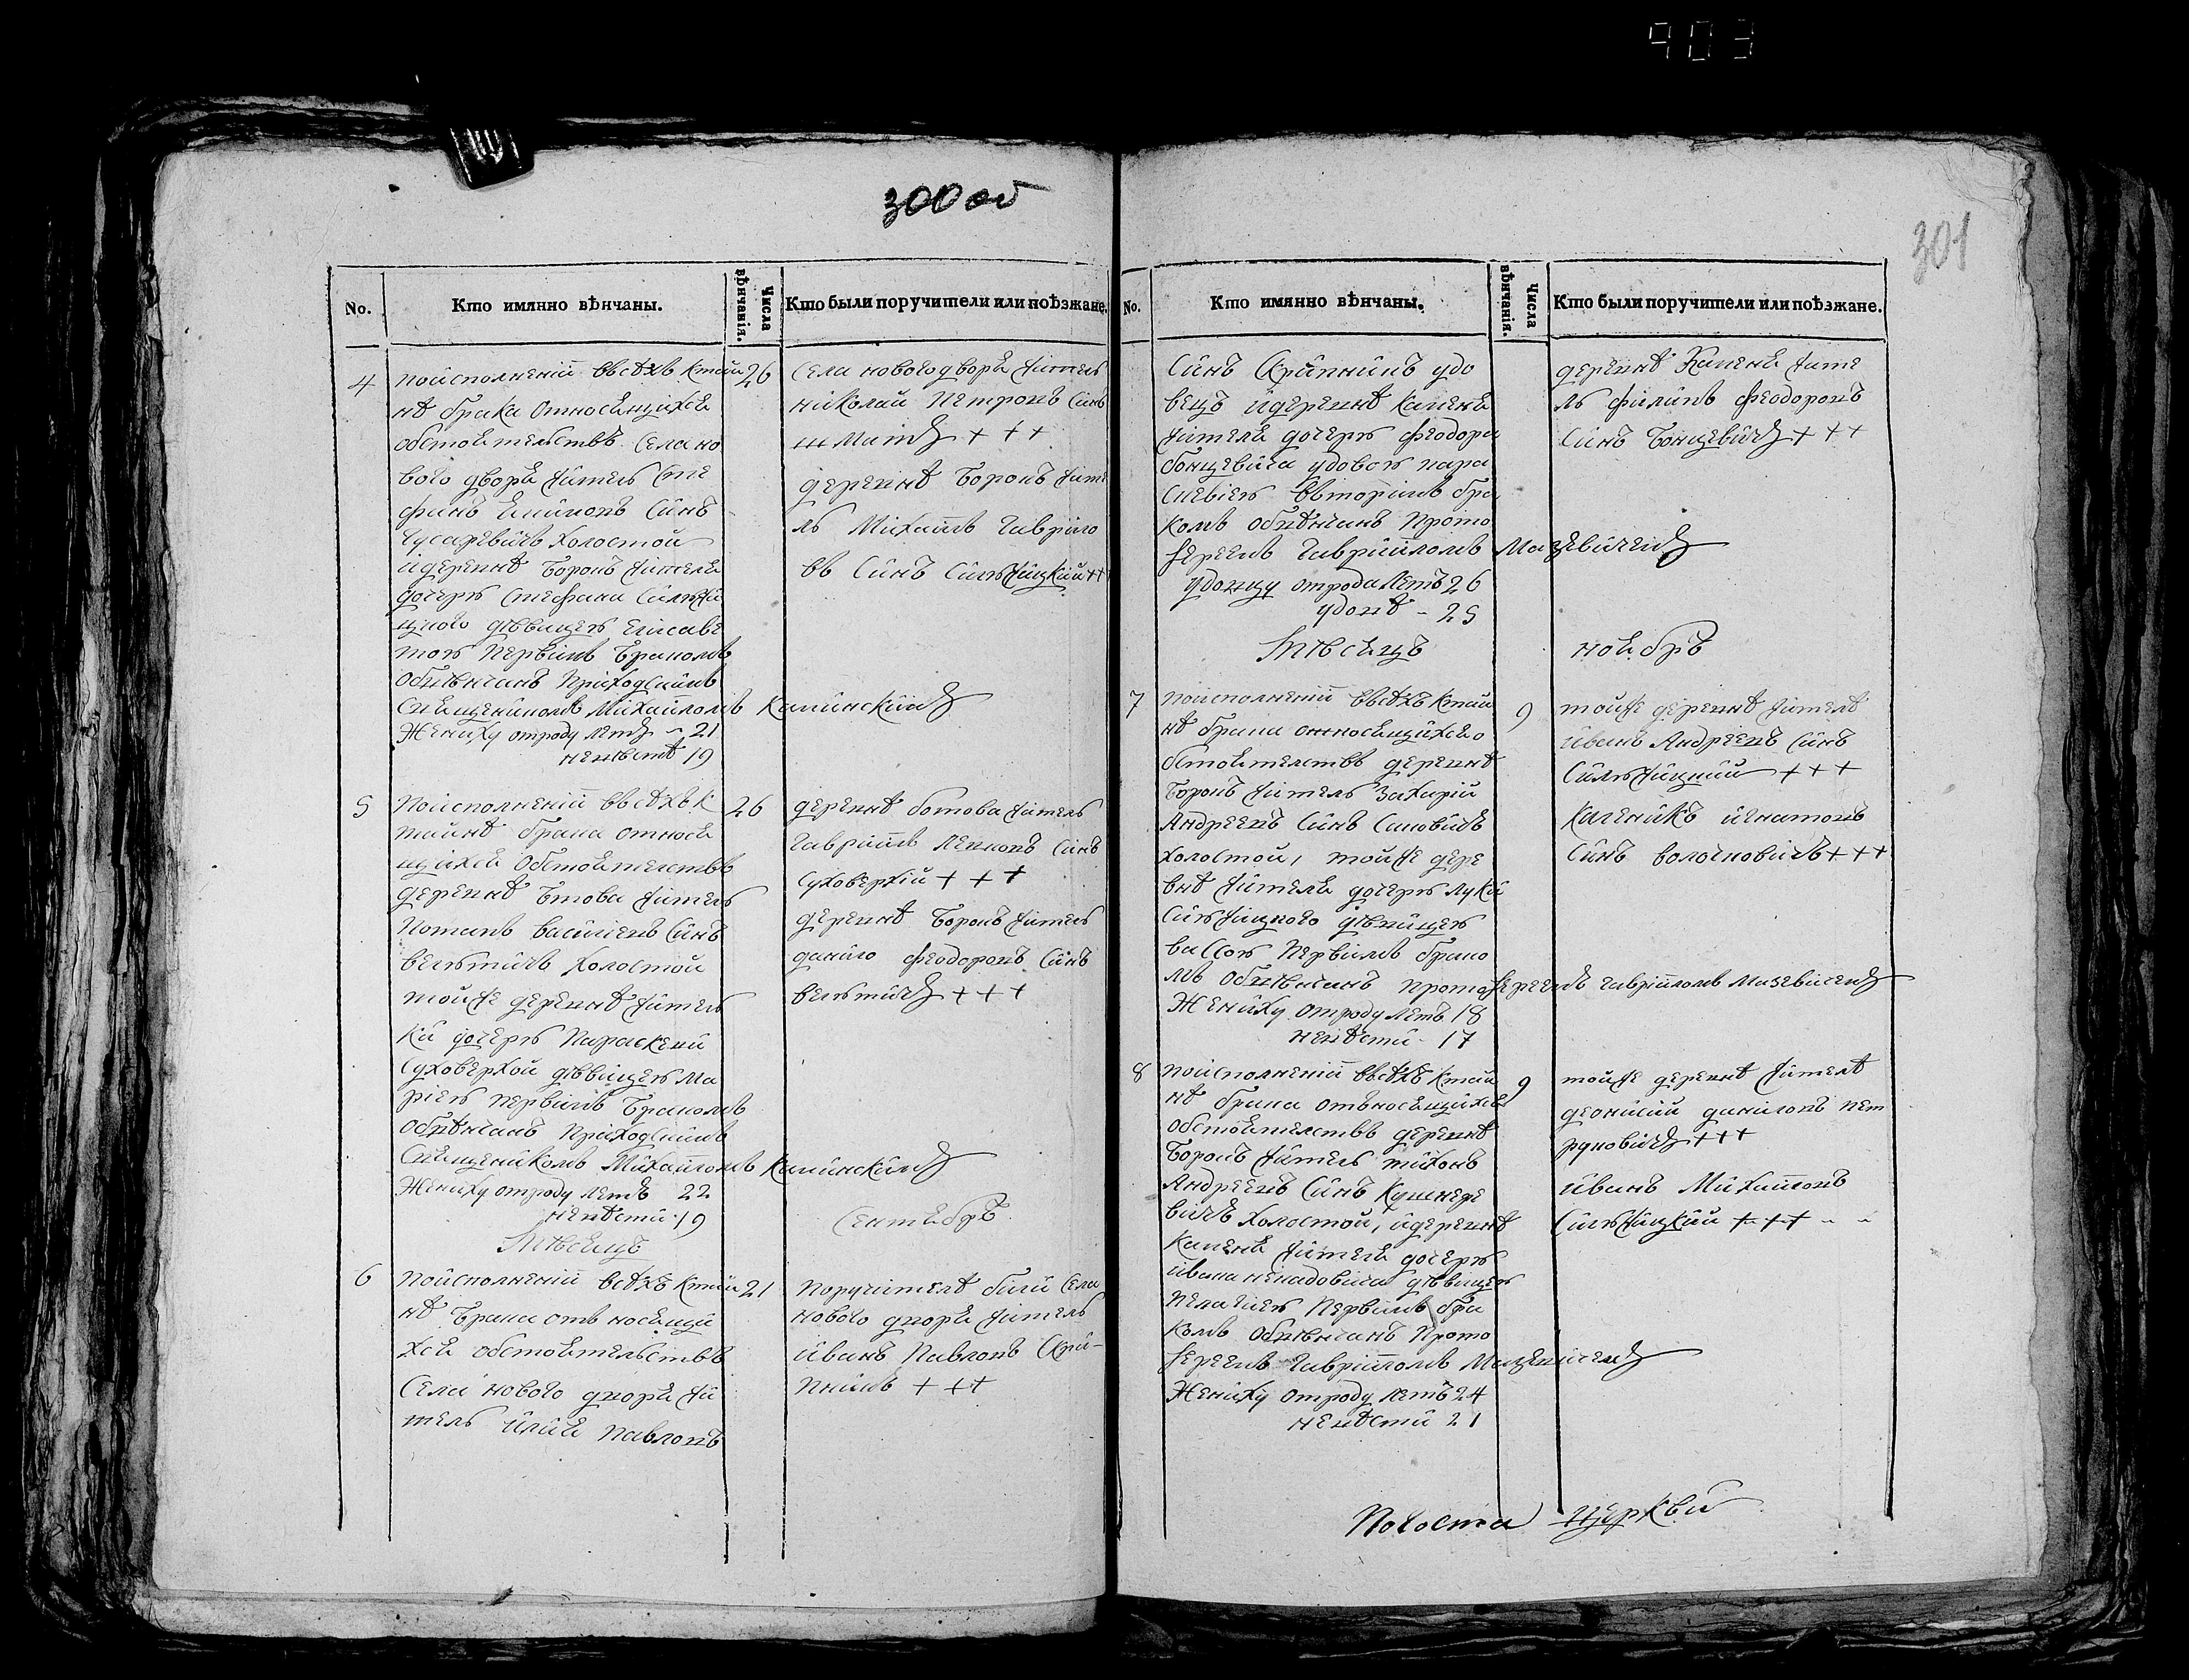 903
300 об
301
No.
Кто имянно вѣнчаны.
Числа вѣнчанія.
Кто были поручители или поѣзжане.
4
поисполненіи всѣхъ ктаи 26
нѣ брака относящихся
обстоятелствъ Села но
вого двора житель Сте
фанъ сынъ
Гусаревичъ холостой
идеревнѣ Боровъ жителя
дочерь Стефана Силжи
цкого дѣвицею Елисаве
тою первымъ бракомъ
обвѣнчанъ приходскимъ
Священикомъ Михаиломъ
Жениху отроду летъ - 21
невѣстѣ 19
Села нового двора житель
николай петровъ Синъ
+ + +
деревнѣ Боровъ жите
ль Михаилъ Гаврило
въ Синъ Силжицкий +++
5
поисполненіи всѣхъ к 26
таинѣ брака относя
щихся обстоятелствъ
деревнѣ Ботова житель
потапъ василіевъ Синъ
велътичъ холостой
тойже деревнѣ житель
ки дочерь параскеви
Суховерхой дѣвицею Ма
ріею первымъ бракомъ
обвѣнчанъ приходскимъ
Священикомъ Михаиломъ
Жениху отроду летъ 22
невѣсти 19
деревнѣ ботова житель
гавриилъ левковъ Синъ
Суховерхій + + +
деревнѣ Боровъ житель
данило феодоровъ Синъ
велътичъ + + +
Мѣсяцъ Сентябръ
6
поисполненіи всѣхъ ктаи 21
нѣ брака отъ носящи
хся обстоятельствъ
Села нового двора жи
тель Илия павловъ
поручителѣ были Села
нового двора житель
иванъ павловъ Скри-
пникъ + + +
No.
Кто имянно вѣнчаны.
Числа вѣнчанія.
Кто были поручители или поѣзжане.
Синъ Скрипникъ удо
вецъ идеревнѣ каменя
жителя дочерь феодора
бонцевича удовою пара
скевіею вторымъ бра
комъ обвѣнчанъ прото
иереемъ гавриіломъ Мацевичемъ
удовцу отрода летъ 26
удовѣ - 25
деревнѣ Каменя жите
ль филипъ феодоровъ
Синъ Бонцевичъ + + +
Мѣсяцъ ноябръ
7
поисполненіи всѣхъ ктаи 9
нѣ брака относящихсео
бстоятелствъ деревнѣ
Боровъ житель Захарій
Андреевъ Синъ
холостой, тойже дере
внѣ жителя дочерь луки
Силжицкого дѣвицею
вассою первымъ брако
мъ обвѣнчанъ протоиереемъ гавриіломъ Мазевичемъ
Жениху отроду летъ 18
невѣсти - 17
тойже деревнѣ жителѣ
иванъ Андреевъ Синъ
Силжицкий + + +
каленикъ игнатовъ
Синъ волосковичъ + + +
8
поисполненіи всѣхъ ктаи 9
нѣ брака отъносящихся
обстоятелствъ деревнѣ
Боровъ житель тихонъ
Андреевъ Синъ кушнере
вичъ холостой, идеревнѣ
каменя жителя дочерь
ивана ненадовича дѣвицею
пелагіею первымъ бра
комъ обвѣнчанъ прото
иереемъ гавриіломъ Мацевичемъ
Жениху отроду летъ 24
невѣсти 21
тойже деревнѣ жителѣ
деонисий даниловъ пет
руковичъ + + +
иванъ Михаиловъ
Силжицкий + + +
погоста церкви